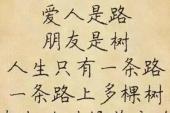 爱人是路
朋友是树
人生只有一条路
一条路上多棵树